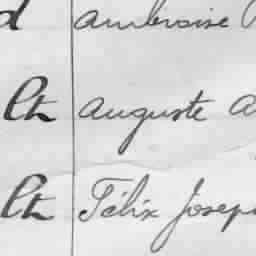 d ambroise
Ch auguste a
Ch Félix Joseph